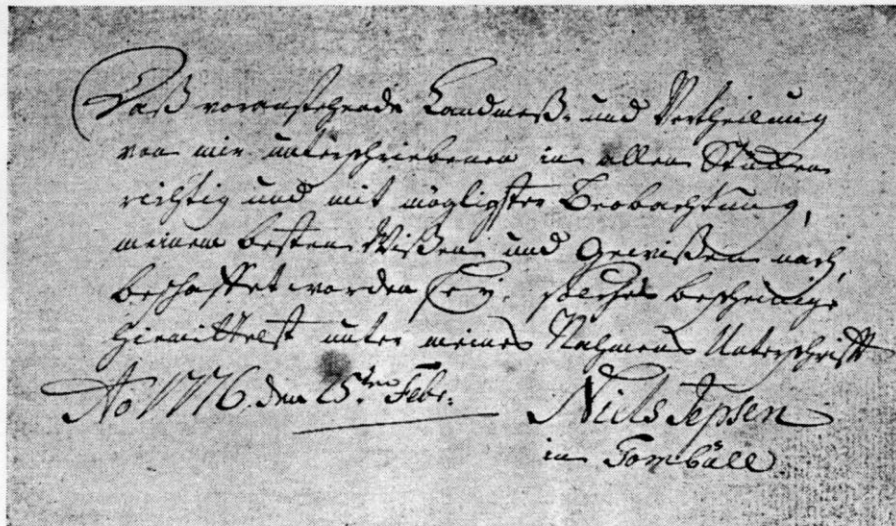 Daß voranstehende Landmeß- und Vertheilung
von mir unterschriebenen in allen Stücken
richtig und mit mögligster Beobachtung,
meinem besten Wißen und Gewißen nach,
beschaffet worden sey. solches bescheinige
hiemittelst unter meines Nahmens Unterschrifft
Ao 1776. den 25sten Febr.
Niels Jepsen
in Tombüll